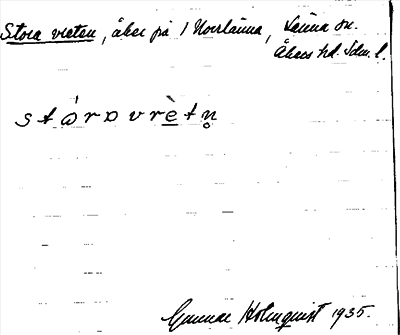 Stora vreten, åker på 1 Norrlänna, Länna sn.
Åkers hd. Sdm. l.
stórɒ vrètn̥
Gunnar Holmquist 1935.